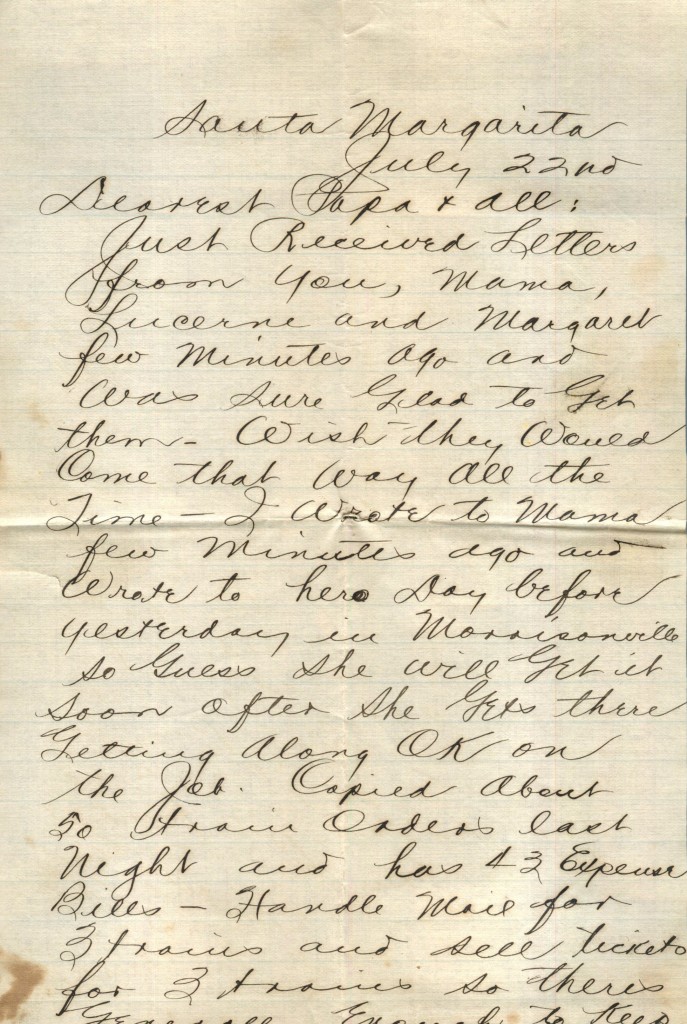 Santa Margarita
July 22nd
Dearest Papa & all:
Just Received Letters
from you, Mama,
Lucerne and Margaret
few Minutes ago and
Was sure Glad to Get
them - Wish they Would
Come that way all the
Time - I Wrote to Mama
few Minutes ago and
Wrote to her Day before
yesterday in Morrisonville
so Guess she will Get it
soon after she Gets there
Getting Along OK on
the Job. Copied About
50 train Orders last
Night and has 43 Expense
Bills - Handle Mail for
3 trains and sell tickets
for 3 trains so theres
Generally Enough to Keep